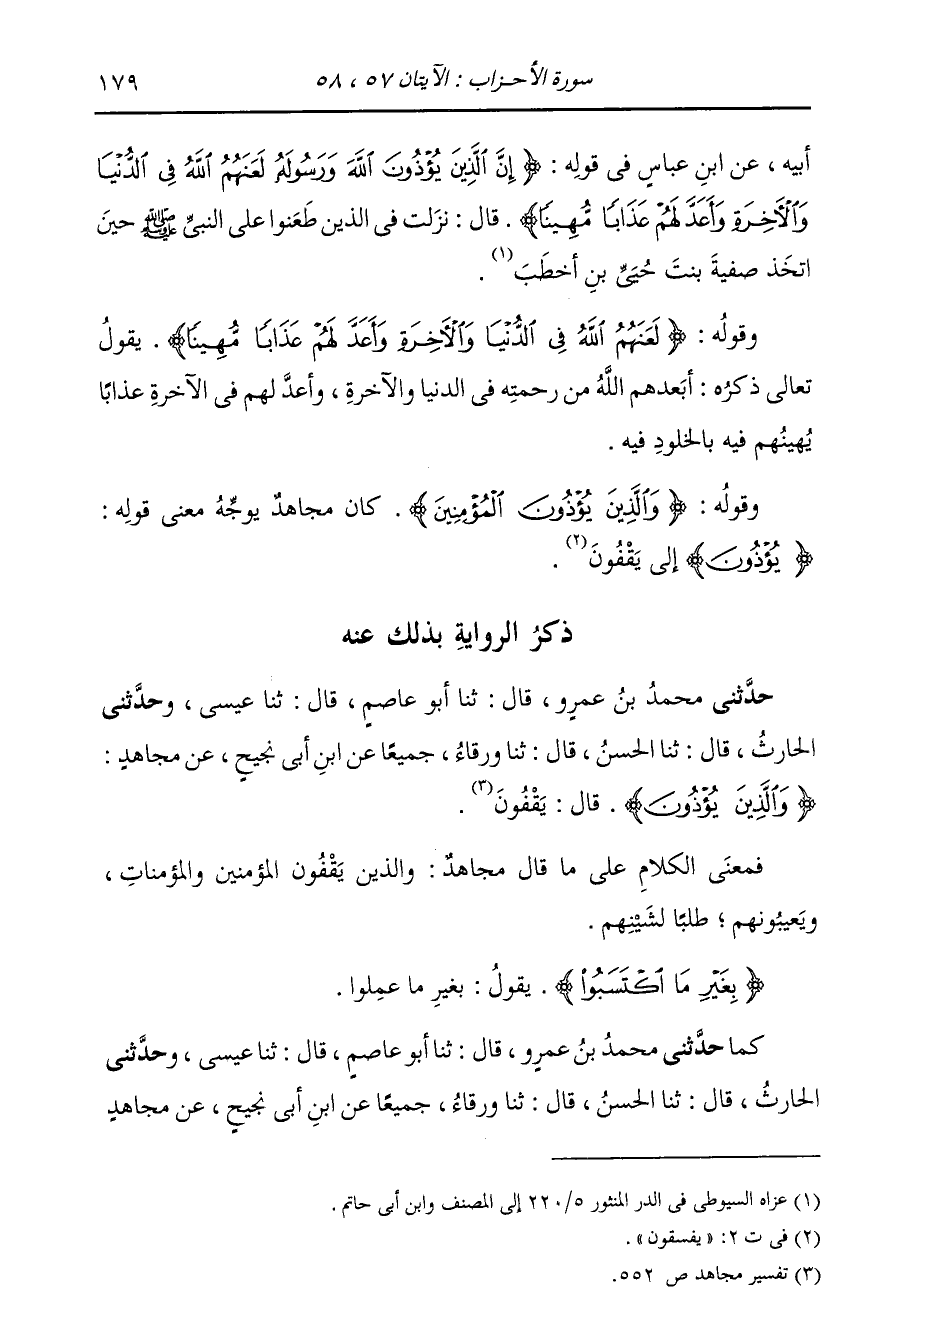 سورة الأحزاب : الآيتان ٥٧ ، ٥٨
١٧٩
أبيه ، عن ابنِ عباسٍ فى قولِه : ﴿ إِنَّ ٱلَّذِينَ يُؤْذُونَ ٱللَّهَ وَرَسُولَهُۥ لَعَنَهُمُ ٱللَّهُ فِى ٱلدُّنْيَا
وَٱلْآخِرَةِ وَأَعَدَّ لَهُمْ عَذَابًا مُّهِينًا﴾ . قال : نزَلت فى الذين طَعَنوا على النبىِّ ﷺ حينَ
اتخَذ صفيةَ بنتَ حُيَىِّ بنِ أخطَبَ (١) .
وقولُه : ﴿ لَعَنَهُمُ ٱللَّهُ فِى ٱلدُّنْيَا وَٱلْآخِرَةِ وَأَعَدَّ لَهُمْ عَذَابًا مُّهِينًا﴾ . يقولُ
تعالى ذكرُه : أبَعدهم اللَّهُ من رحمتِه فى الدنيا والآخرةِ ، وأعدَّ لهم فى الآخرةِ عذابًا
يُهينُهم فيه بالخلودِ فيه .
وقولُه : ﴿ وَٱلَّذِينَ يُؤْذُونَ ٱلْمُؤْمِنِينَ ﴾ . كان مجاهدٌ يوجِّهُ معنى قولِه :
﴿ يُؤْذُونَ ﴾ إلى يَقْفُونَ (٢) .
ذكرُ الروايةِ بذلك عنه
حدَّثنى محمدُ بنُ عمرٍو ، قال : ثنا أبو عاصمٍ ، قال : ثنا عيسى ، وحدَّثنى
الحارثُ ، قال : ثنا الحسنُ ، قال : ثنا ورقاءُ ، جميعًا عن ابنِ أبى نجيحٍ ، عن مجاهدٍ :
﴿ وَٱلَّذِينَ يُؤْذُونَ ﴾ . قال : يَقْفُونَ (٣) .
فمعنَى الكلامِ على ما قال مجاهدٌ : والذين يَقْفُون المؤمنين والمؤمناتِ ،
ويَعيبُونهم ؛ طلبًا لشَيْنِهم .
﴿ بِغَيْرِ مَا ٱكْتَسَبُوا۟ ﴾ . يقولُ : بغيرِ ما عمِلوا .
كما حدَّثنى محمدُ بنُ عمرٍو ، قال : ثنا أبو عاصمٍ ، قال : ثنا عيسى ، وحدَّثنى
الحارثُ ، قال : ثنا الحسنُ ، قال : ثنا ورقاءُ ، جميعًا عن ابنِ أبى نجيحٍ ، عن مجاهدٍ
(١) عزاه السيوطى فى الدر المنثور ٢٢٠/٥ إلى المصنف وابن أبى حاتم .
(٢) فى ت ٢: « يفسقون » .
(٣) تفسير مجاهد ص ٥٥٢.